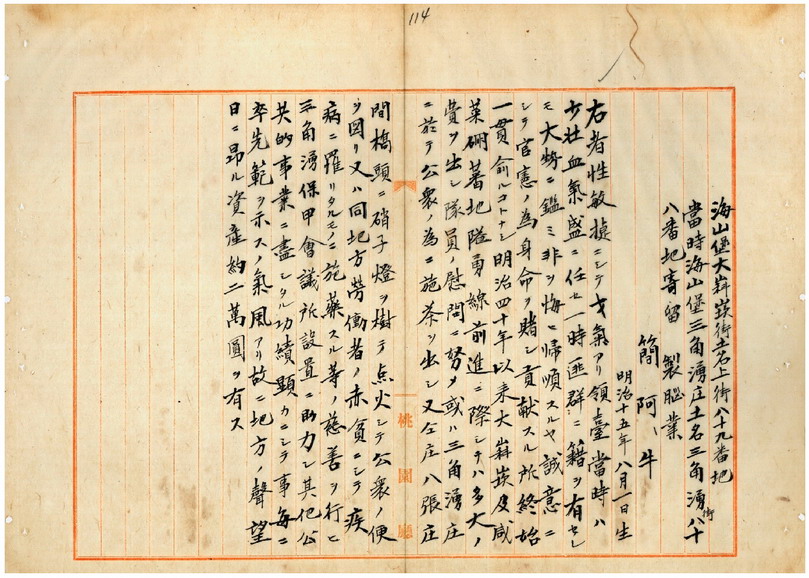 114
海山堡大嵙崁街土名上街八十九番地
當時海山堡三角湧庄土名三角湧街八十
八番地寄留 製脳業
簡阿牛
明治十五年八月一日生
右者性敏捷ニシテ才氣アリ領臺當時ハ
少壮血氣盛ニ任セ一時匪群ニ籍ヲ有セシ
モ大勢ニ鑑ミ非ヲ悔ヒ帰順スルヤ誠意ニ
シテ官憲ノ為身命ヲ賭シ貢献スル所終始
一貫渝ルコトナシ明治四十年以来大嵙崁及咸
菜硼蕃地隘勇線前進ニ際シテハ多大ノ
費ヲ出シ隊員ノ慰問ニ努メ或ハ三角湧庄
ニ於テ公衆ノ為ニ施茶ヲ出シ又仝庄八張庄
間橋頭ニ硝子燈ヲ樹テ点火シテ公衆ノ便
ヲ図リ又ハ同地方労働者ノ赤貧ニシテ疾
病ニ罹リタルモノニ施藥スル等ノ慈善ヲ行ヒ
三角湧保甲會議所設置ニ助力シ其他公
共的事業ニ盡シタル功績顕カニシテ事毎ニ
率先範ヲ示スノ氣風アリ故ニ地方ノ聲望
日ニ昂ル資産約二萬圓ヲ有ス
桃園廳